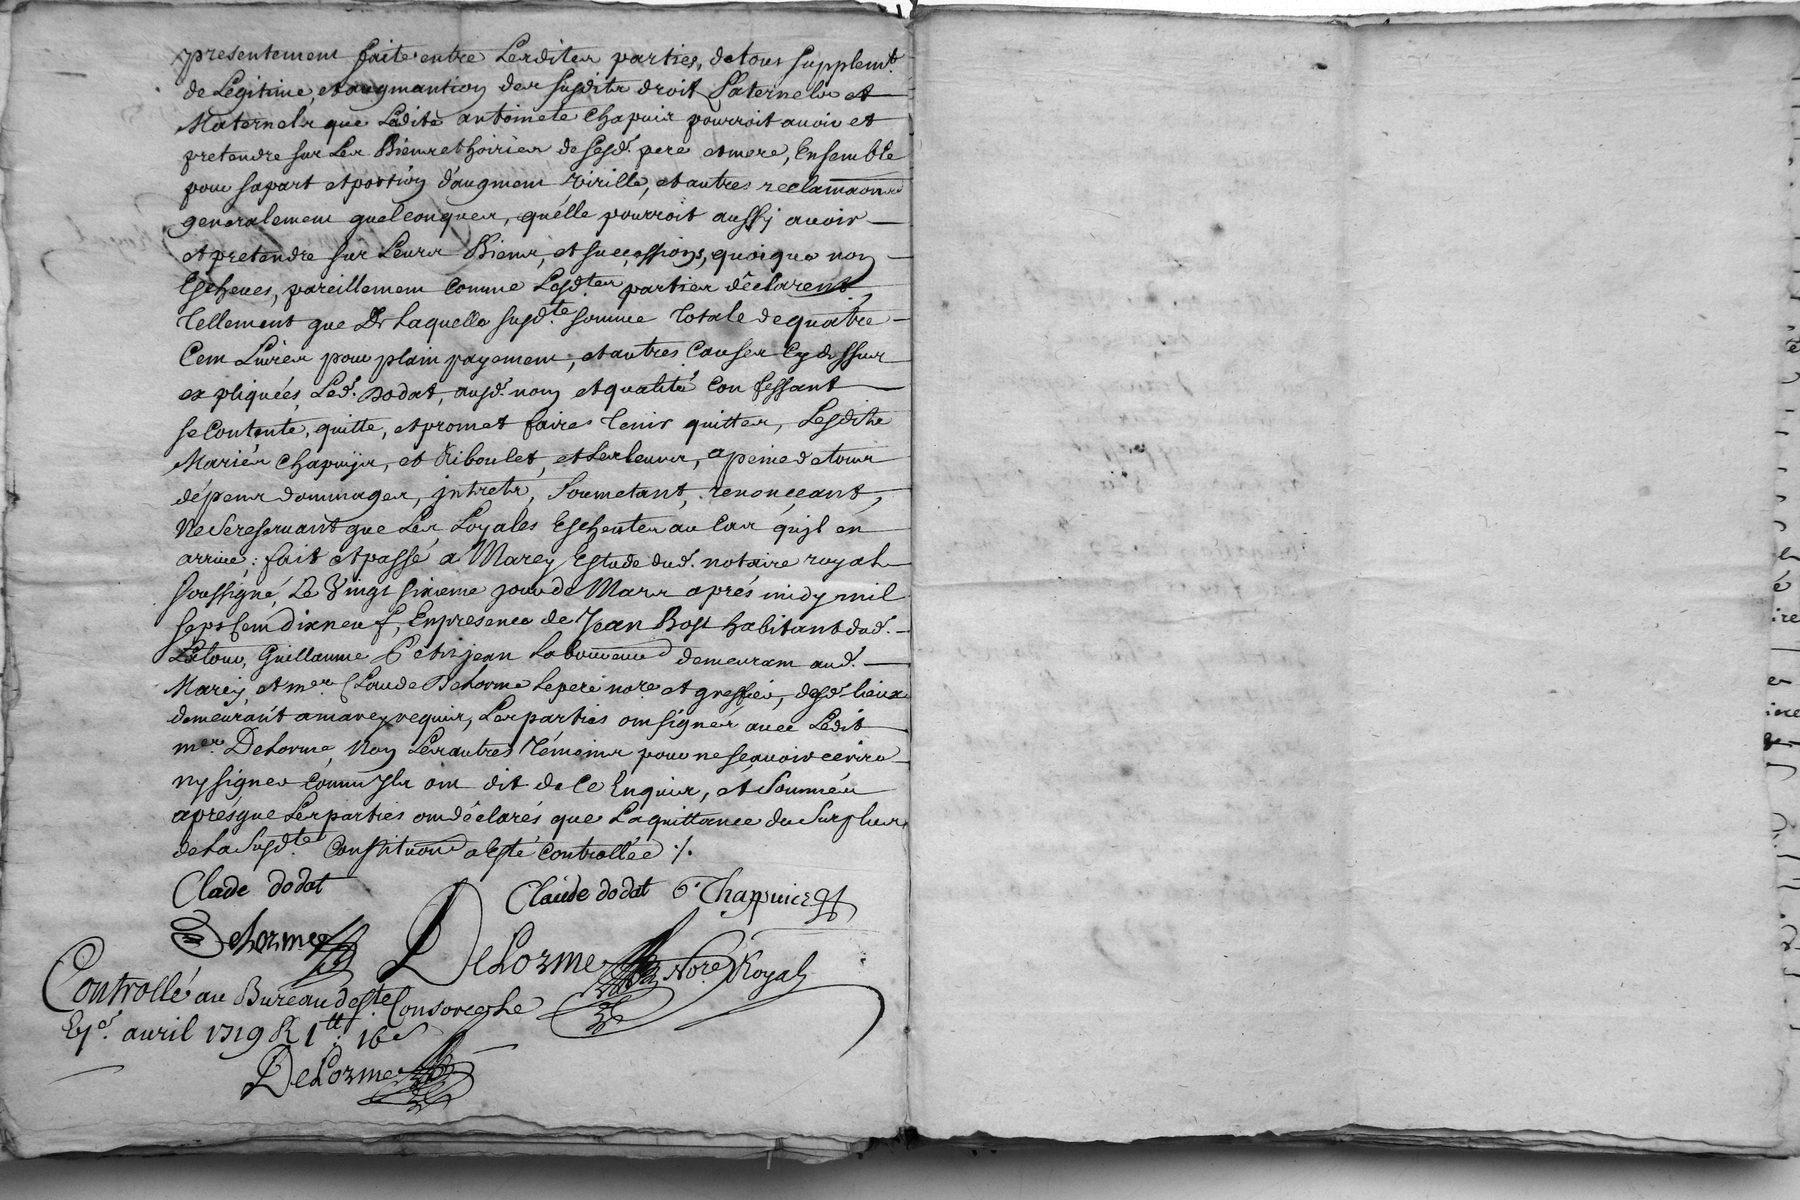 presentement faite entre Lesdites parties, de tous supplemt.
de Legitime, et augmantion des susdits droit Paternels et
Maternels que Ladite antoinete Chapuis pourroit avoir et
pretendre sur Les Biens et hoiries de sesd. pere et mere, Ensemble
pour sa part et portion d'augment virille, et autres reclamaons
generalement quelconques, quélle pourroit aussy avoir
et pretendre sur Leurs Biens, et successions, quoique non
Escheues, pareillement comme Lesdtes parties déclarent
Tellement que De Laquelle susdte. somme Totale de quatre
Cent Livres pour plain payement, et autres Causes Cy dessus
expliquées, Led. Dodat, ausd. nom et qualité Confessant
se Contente, quitte, et promet faires tenir quittes, Lesdits
Mariés Chapuys, et Riboulet, et Les Leurs, a peine de tous
dépens dommages, jntrets, Soumetant, renonçeant,
Ne se reservant que Les Loyales Escheutes au Cas qujl en
arrive; fait et passé a Marcy Estude dud. notaire royal
soussigné, Le Vingt sixieme jour de Mars aprés midy mil
sept Cent dixneuf, En presence de Jean Bost habitant dud.
Latour, Guillaume Petitjean Laboureur demeurant aud.
Marcy, et mer. Claude Delorme Le pere nore et greffier, desd. lieux
demeurant a marcy requis, Les parties ont signés avec Ledit
mer. Delorme, Non Les autres Témoins pour ne sçavoir écrire
ny signer Comm Jls ont dit de Ce Enquis, et Sommés
aprésque Les parties ont déclarés que La quittance du Surplus
de La Susdte. Constituon a Esté Controllée ./.
Clade dodat
Claude dodat C. Chappuicz
Delorme
DeLorme Nore Royal
Controllé au Bureau de St. Consorcqhe
Le 7e. avril 1719 R 1tt: 16s
DeLorme